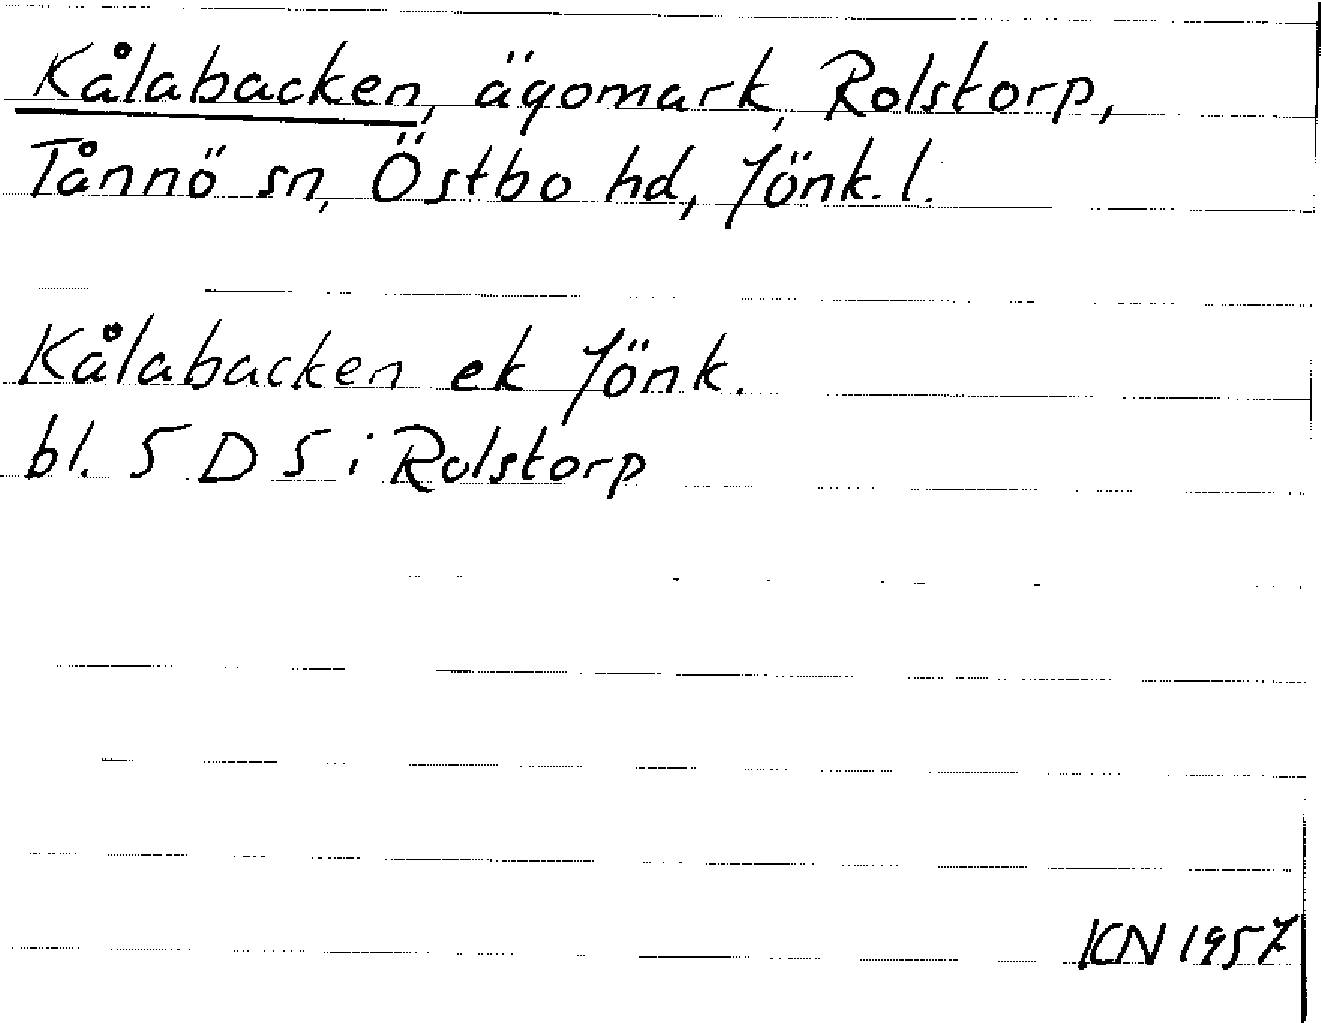 Kålabacken, ägomark, Rolstorp,
Tånnö sn, Östbo hd, Jönk. l.
Kålabacken ek Jönk.
bl. 5 D 5 i Rolstorp
KN 1957